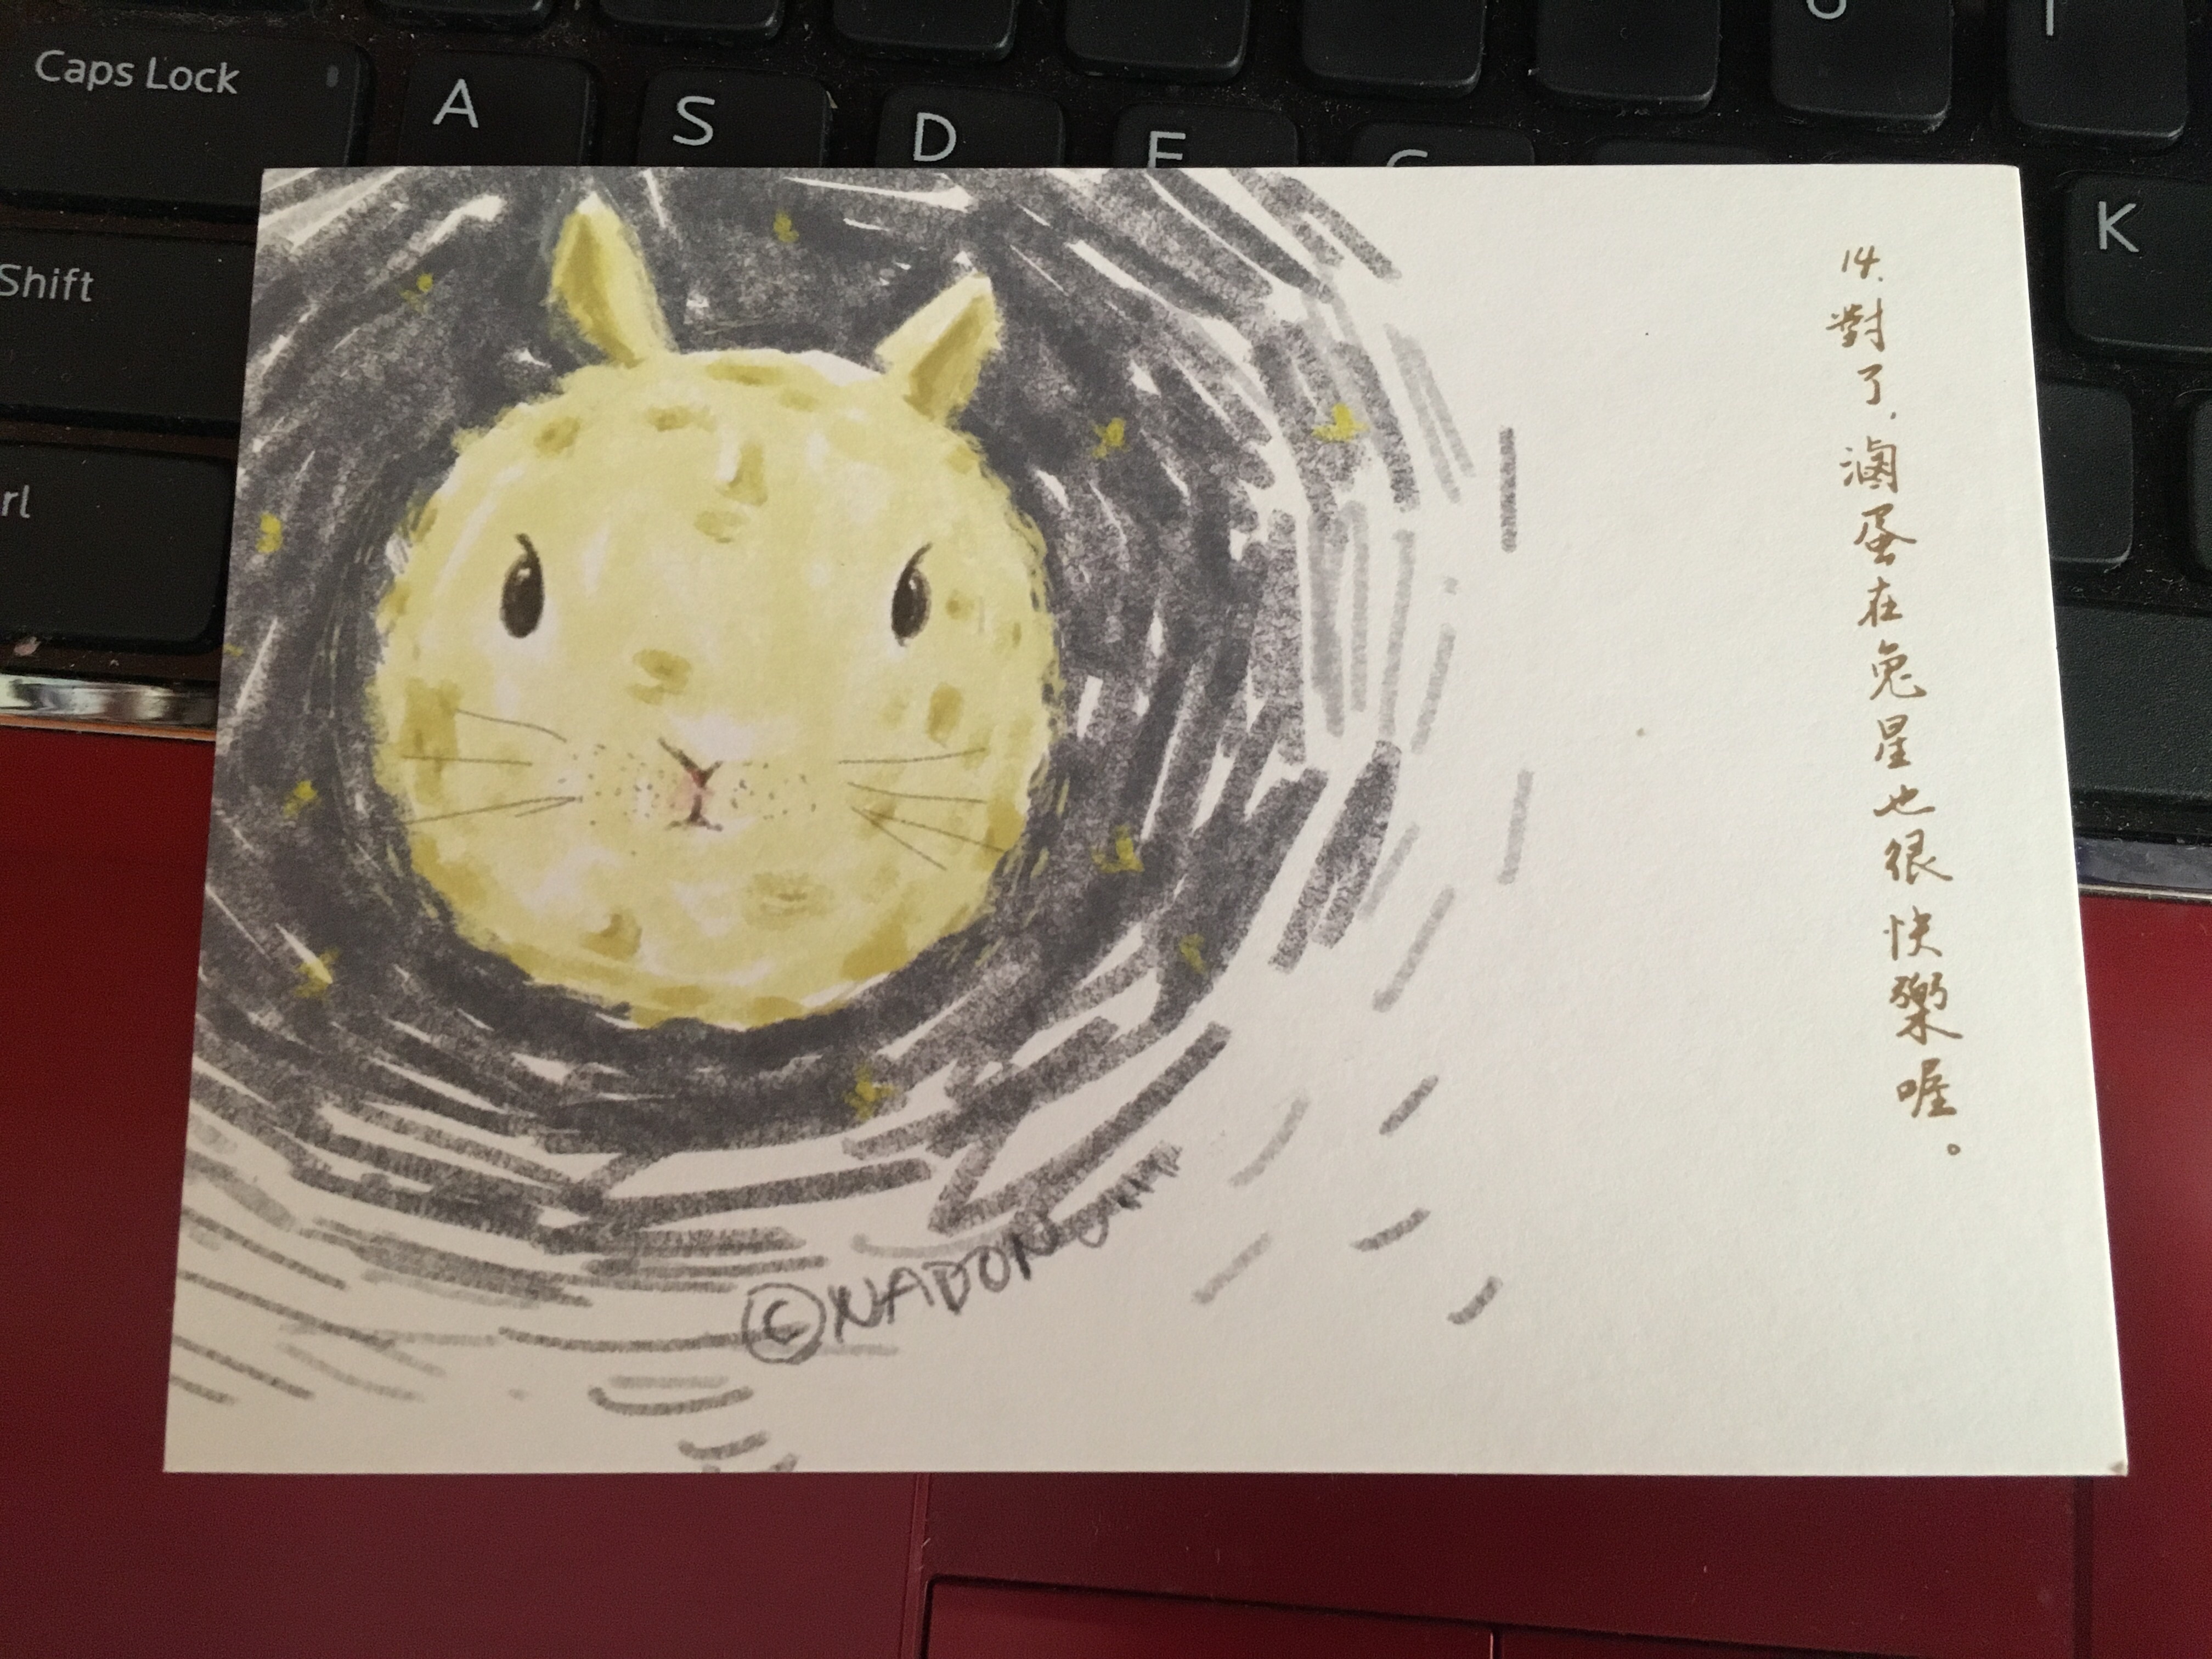 Caps Lock
A
S
D
F
G
K
Shift
14.對了,滷蛋在兔星也很快樂喔。
©NADON